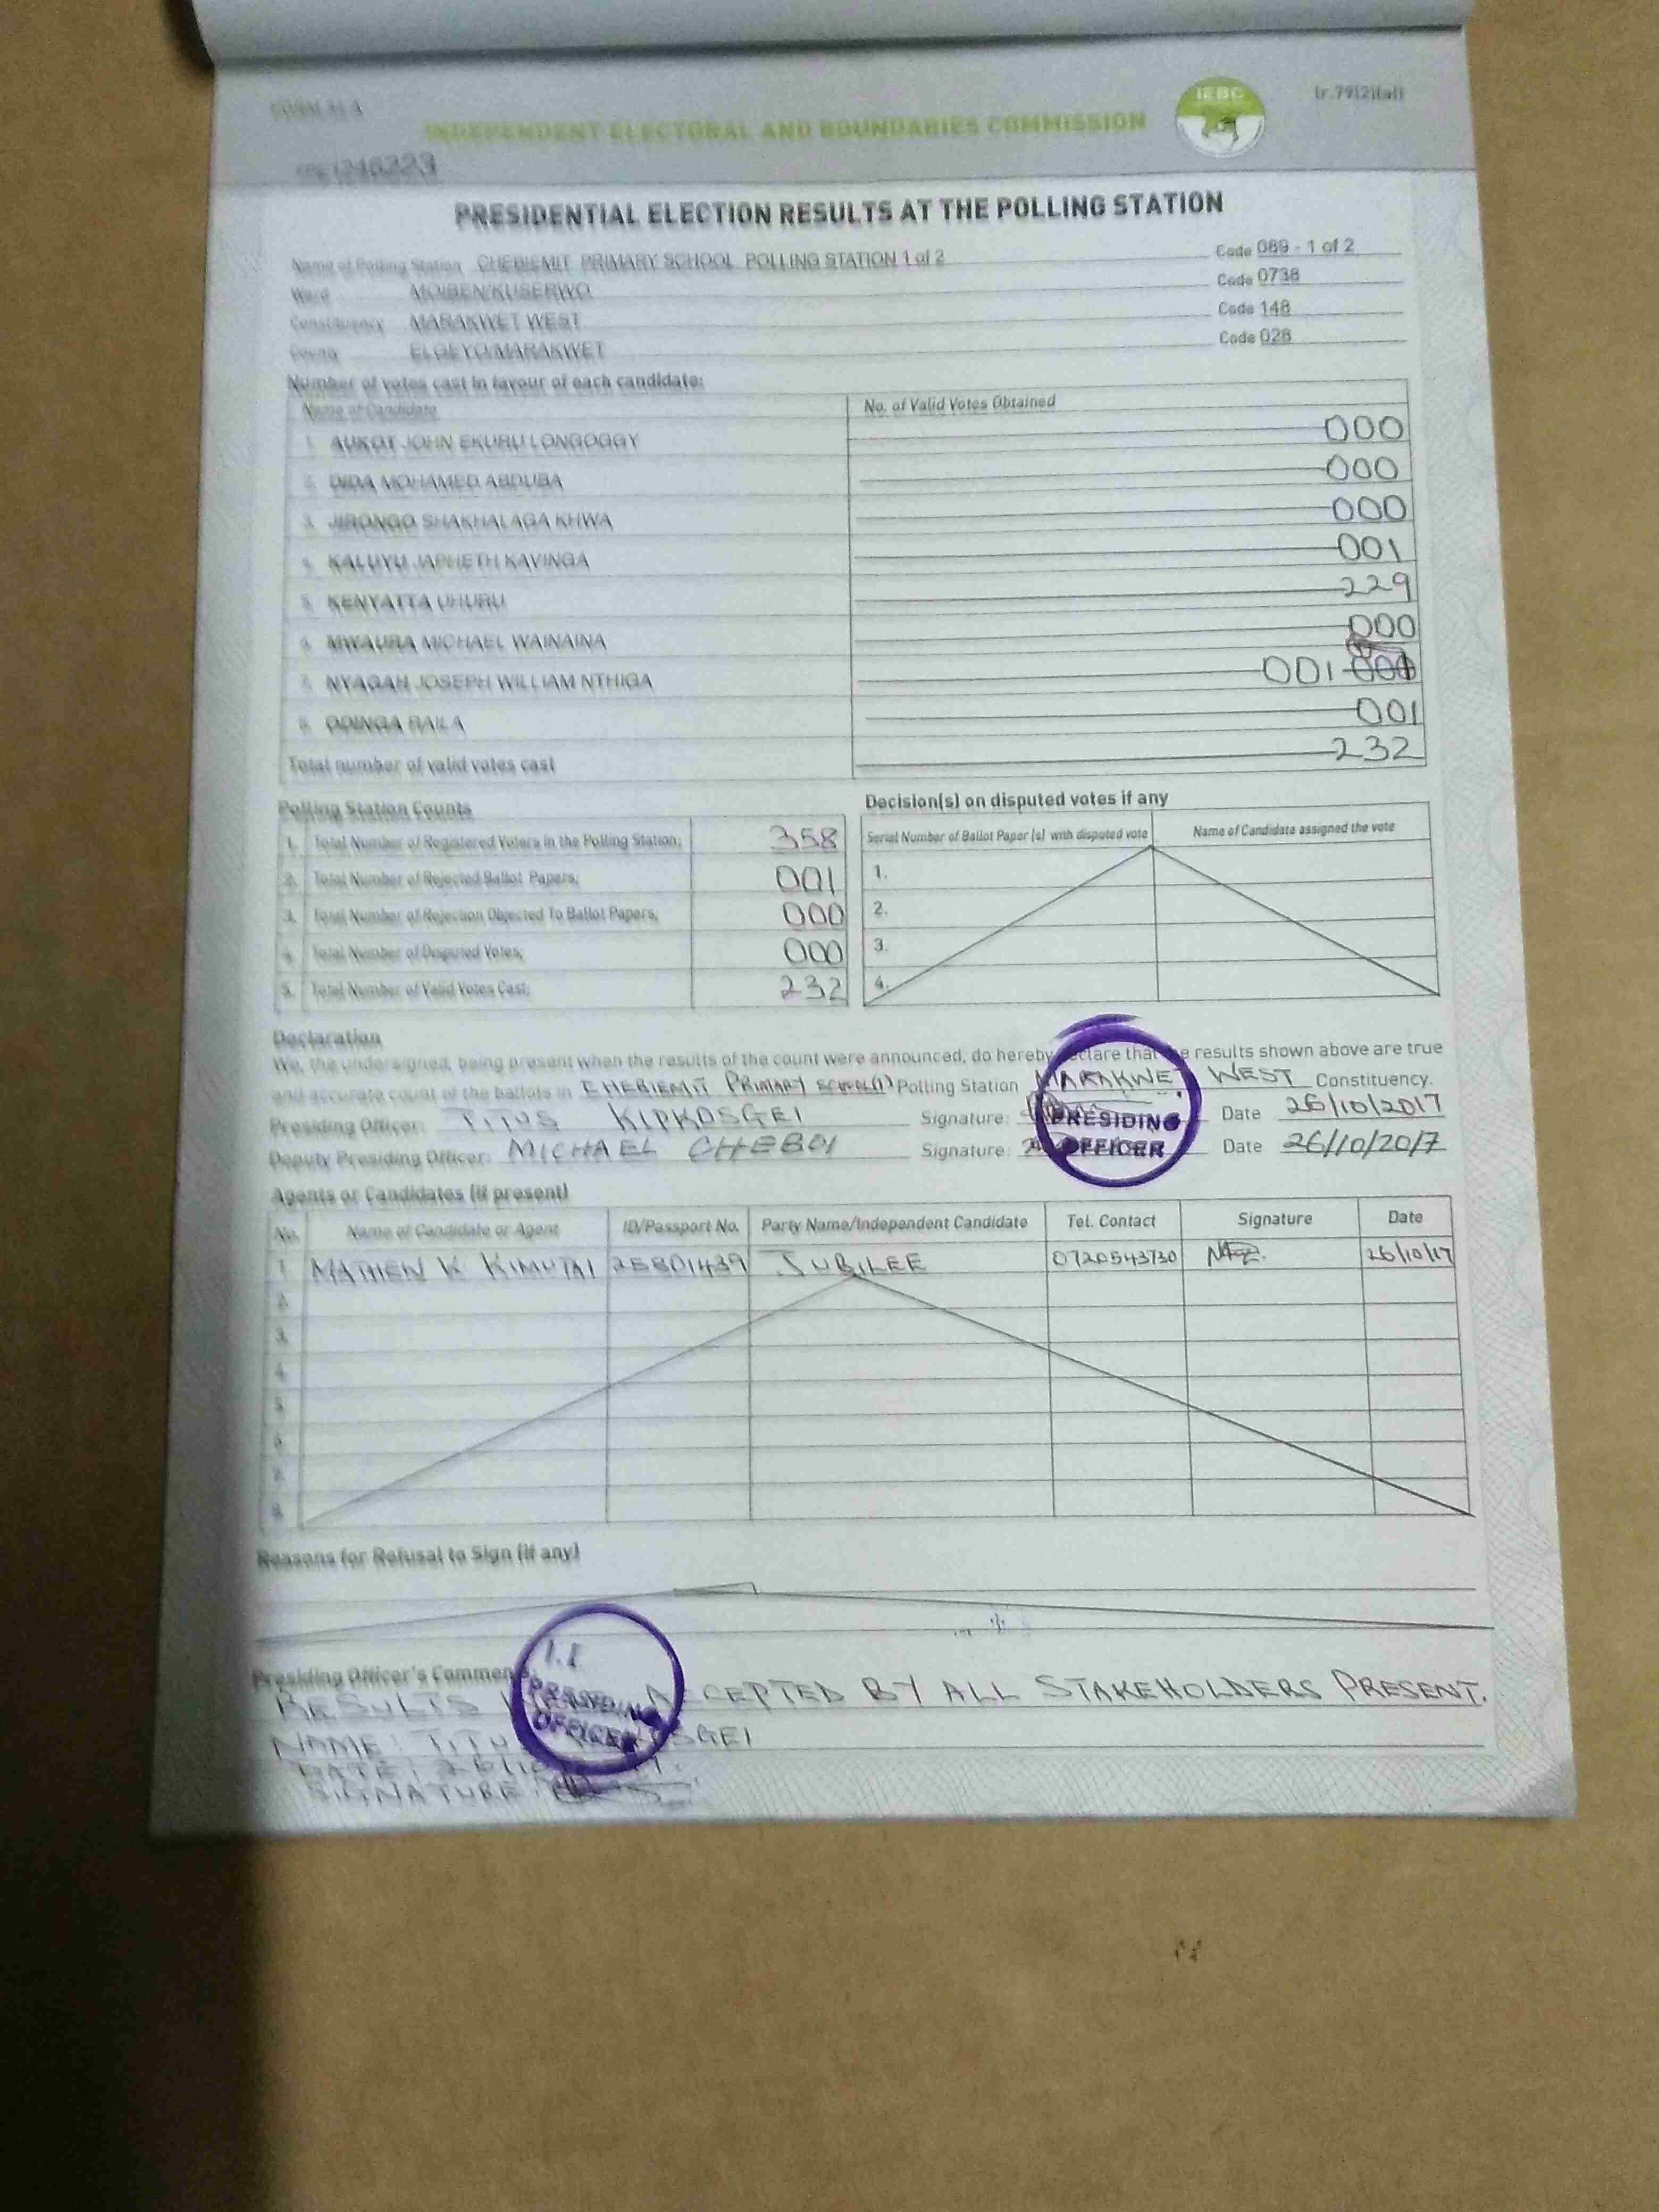 FORM 34 A
(r.79(2)(a))
IEBC
INDEPENDENT ELECTORAL AND BOUNDARIES COMMISSION
1246323
PRESIDENTIAL ELECTION RESULTS AT THE POLLING STATION
Name of Polling Station CHEBIEMIT PRIMARY SCHOOL POLLING STATION 1 of 2 Code 089 - 1 of 2
Ward MOIBEN/KUSERWO Code 0738
Constituency MARAKWET WEST Code 148
County ELGEYO/MARAKWET Code 028
Number of votes cast in favour of each candidate:
Name of Candidate No. of Valid Votes Obtained
1. AUKOT JOHN EKURU LONGOGGY 000
2. DIDA MOHAMED ABDUBA 000
3. JIRONGO SHAKHALAGA KHWA 000
4. KALUYU JAPHETH KAVINGA 001
5. KENYATTA UHURU 229
6. MWAURA MICHAEL WAINAINA 000
7. NYAGAH JOSEPH WILLIAM NTHIGA 001
8. ODINGA RAILA 001
Total number of valid votes cast 232
Polling Station Counts
1. Total Number of Registered Voters in the Polling Station; 358
2. Total Number of Rejected Ballot Papers; 001
3. Total Number of Rejection Objected To Ballot Papers; 000
4. Total Number of Disputed Votes; 000
5. Total Number of Valid Votes Cast; 232
Decision(s) on disputed votes if any
Serial Number of Ballot Paper (s) with disputed vote Name of Candidate assigned the vote
1.
2.
3.
4.
Declaration
We, the undersigned, being present when the results of the count were announced, do hereby declare that the results shown above are true
and accurate count of the ballots in CHEBIEMIT PRIMARY SCHOOL(1) Polling Station MARAKWET WEST Constituency.
Presiding Officer: TITUS KIPKOSGEI Signature: Date 26/10/2017
Deputy Presiding Officer: MICHAEL CHEBOI Signature: Date 26/10/2017
PRESIDING
OFFICER
Agents or Candidates (if present)
No. Name of Candidate or Agent ID/Passport No. Party Name/Independent Candidate Tel. Contact Signature Date
1 MATHEN K KIMUTAI 25801439 JUBILEE 0720543730 26/10/17
2.
3.
4.
5.
6.
7.
8.
Reasons for Refusal to Sign (if any)
Presiding Officer's Comments
RESULTS ACCEPTED BY ALL STAKEHOLDERS PRESENT.
NAME: TITUS
DATE:
SIGNATURE:
PRESIDING
OFFICER